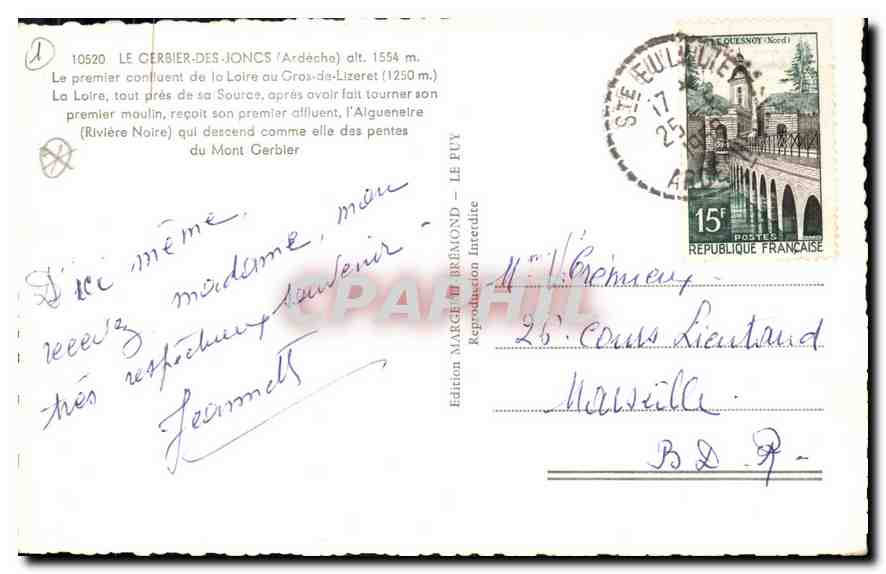 1
10520 LE GERBIER-DES-JONCS (Ardèche) alt. 1554 m.
Le premier confluent de la Loire au Gros-de-Lizeret (1250 m.)
La Loire, tout près de sa Source, après avoir fait tourner son
premier moulin, reçoit son premier affluent, l'Aigueneire
(Rivière Noire) qui descend comme elle des pentes
du Mont Gerbier
D'ici même,
recevez madame, mon
très respectueux souvenir -
Jeannett
Edition MARGERIT-BRÉMOND - LE PUY
Reproduction Interdite
CPAPHIL
STE EULALIE
17
25
ARDECHE
LE QUESNOY (Nord)
15F
POSTES
REPUBLIQUE FRANÇAISE
Mme Crémieux
26 cours Lieutaud
Marseille
B D R -